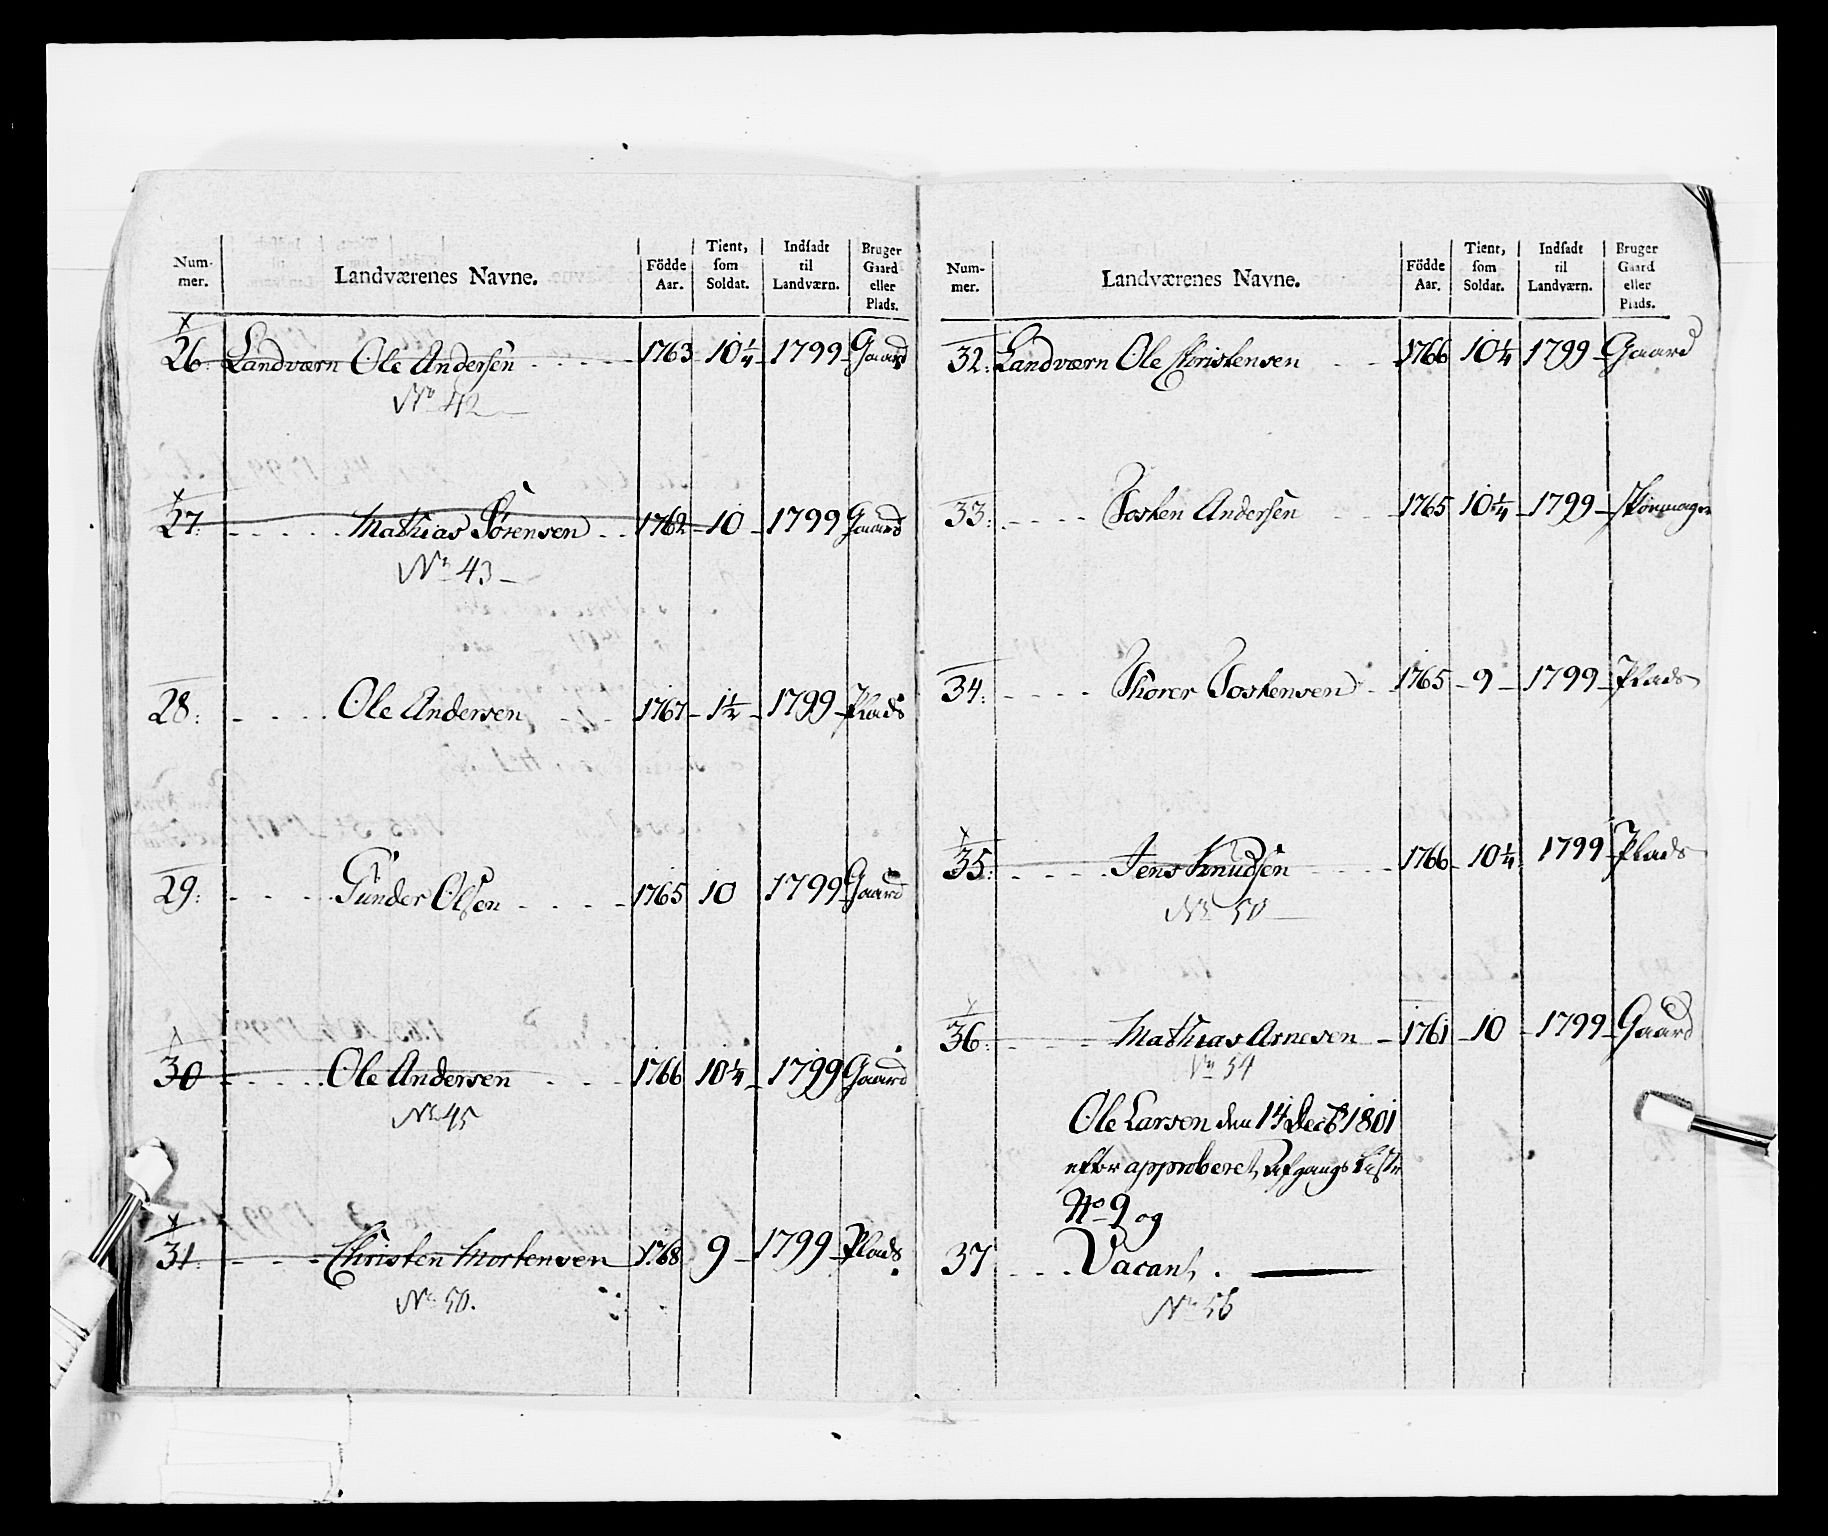 Num-
mer.
Landværenes Navne.
Födde
Aar.
Tient,
som
Soldat.
Indsadt
til
Landværn.
Bruger
Gaard
eller
Plads.
26. Landværn Ole Andersen 1763 10 1/4 1799 Gaard
No 42
27. Mathias Sørensen 1762 10 1799 Gaard
No 43
28. Ole Andersen 1767 1 1/2 1799 Plads
29. Gunder Olsen 1765 10 1799 Gaard
30 Ole Andersen 1766 10 1/4 1799 Gaard
No 45
31. Christen Mortensen 1768 9 1799 Plads
No 50.
Num-
mer.
Landværenes Navne.
Födde
Aar.
Tient,
som
Soldat.
Indsadt
til
Landværn.
Bruger
Gaard
eller
Plads.
32. Landværn Ole Christensen 1766 10 1/4 1799 Gaard
33. Tosten Andersen 1765 10 1/4 1799
34. Thorer Tostensen 1765 9 1799 Plads
35. Jens Knudsen 1766 10 1/4 1799 Plads
No 50
36. Mathias Arnesen 1761 10 1799 Gaard
No 54
Ole Larsen den 14 Decbr 1801
efter approberet Afgangs Liste
No 9 og
37 Vacant.